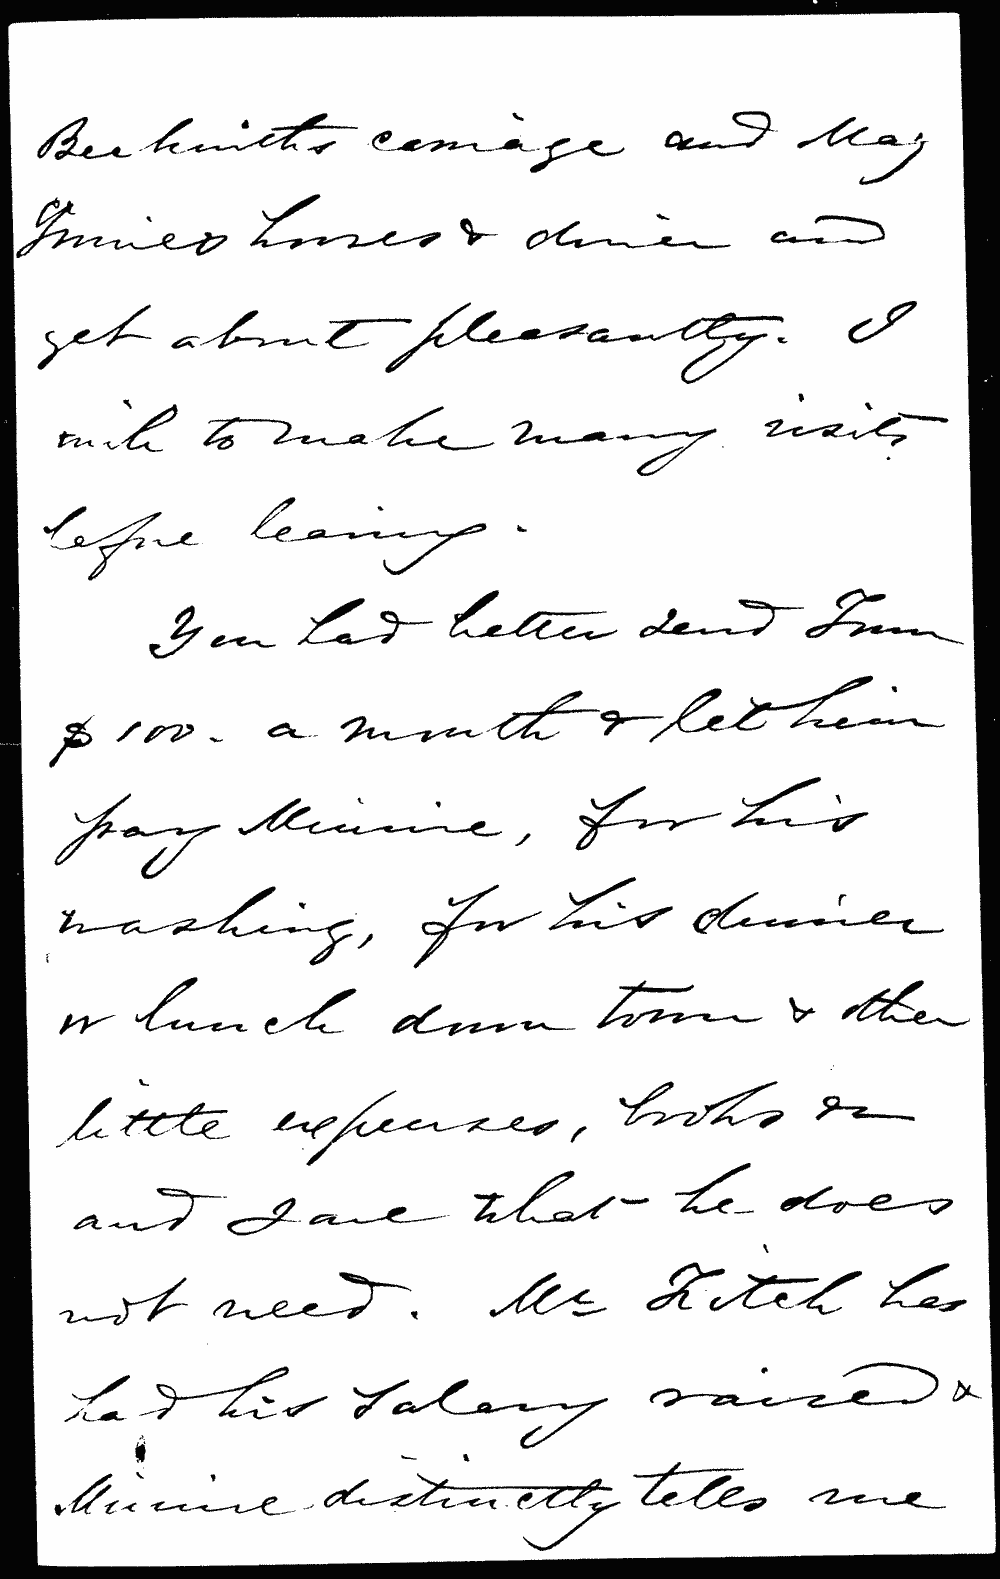 Beckwith's carriage and May
horses & driver and
get about pleasantly. I
wish to make many visits
before leaving.
You had better send Tom
$100. a month & let him
pay Minnie, for his
washing, for his dinner
or lunch down town & other
little expenses, books &c
and save what he does
not need. Mr Fitch has
had his salary raised &
Minnie distinctly tells me